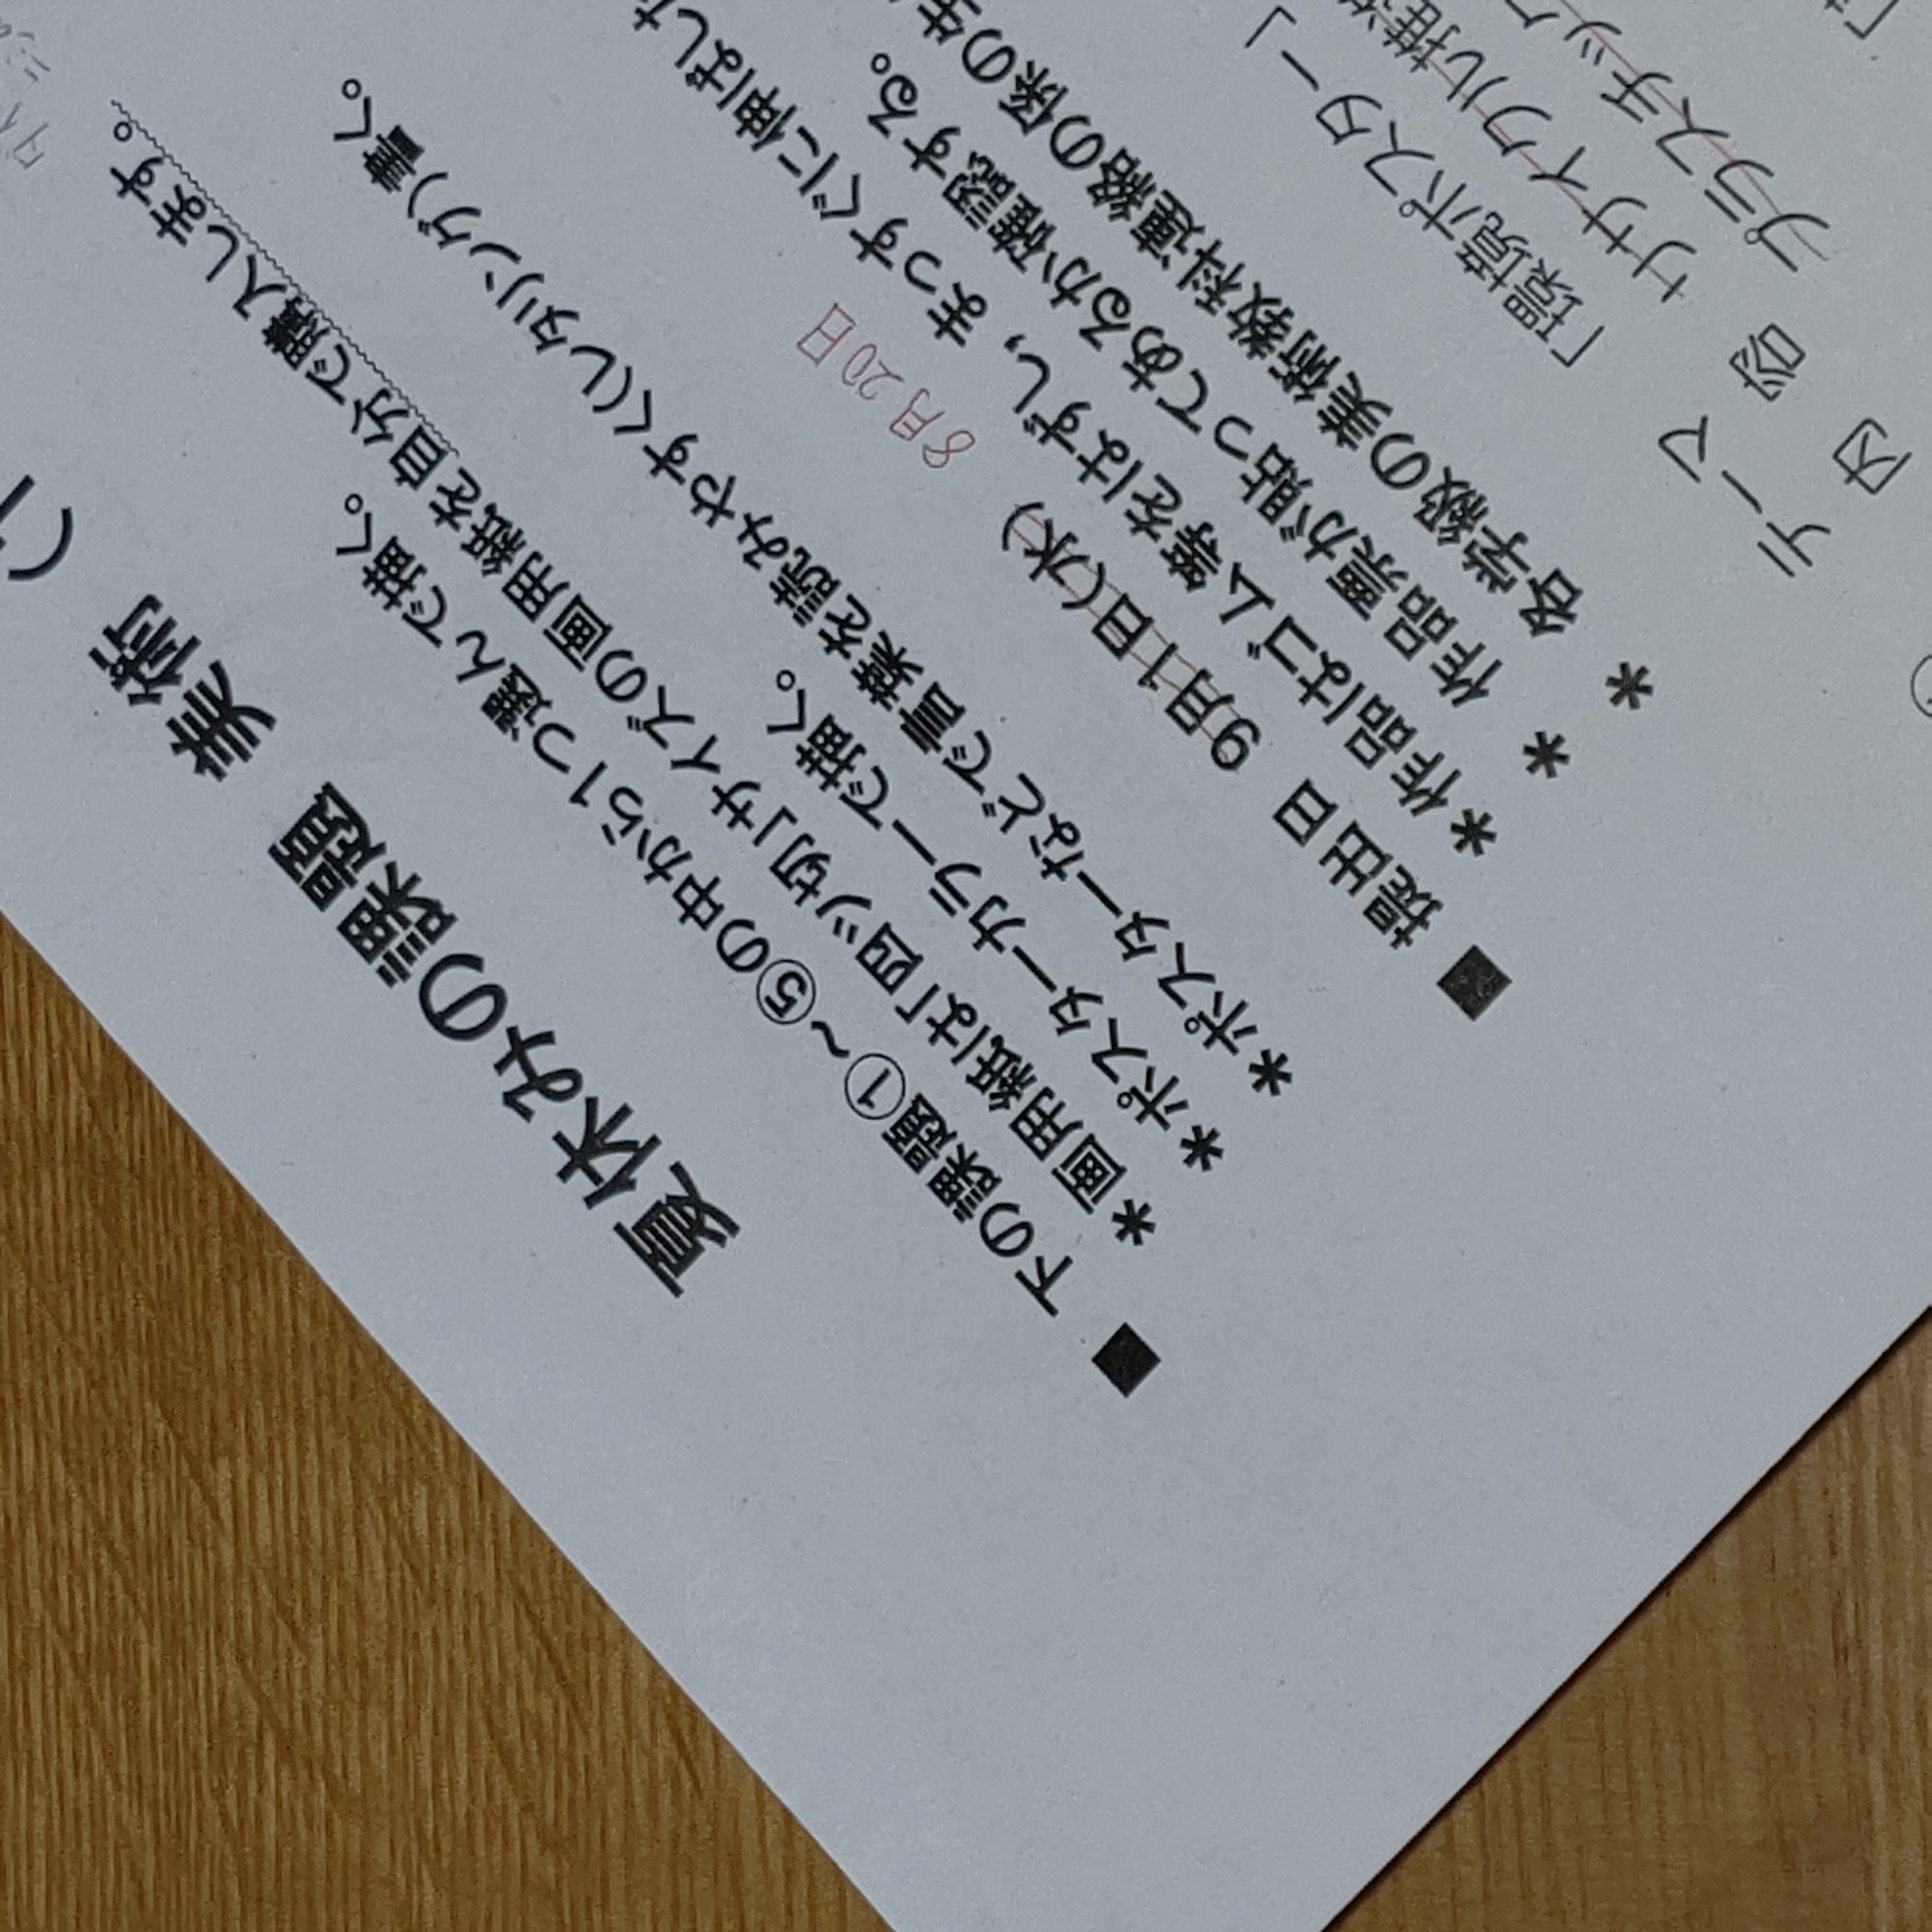 夏休みの課題 美術 (
■ 下の課題①～⑤の中から1つ選んで描く。
*画用紙は「四ツ切」サイズの画用紙を自分で購入します。
*ポスターカラーで描く。
*ポスターなどで言葉を読みやすく(レタリング)書く。
■ 提出日 9月1日(水) 8月20日
*作品はゴム等をはずし,まっすぐに伸ばした
* 作品票が貼ってあるか確認する。
* 各学級の美術教科連絡の係の生
テーマ 「環境ポスター」
内容 リサイクル推進
プラスチック